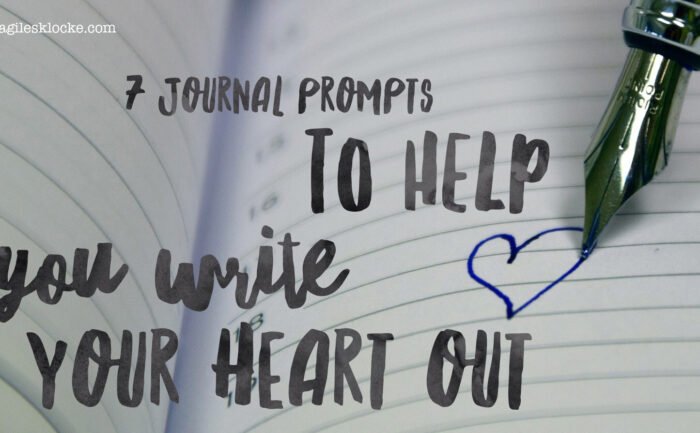 agilesklocke.com
7 JOURNAL PROMPTS
TO HELP
you write
YOUR HEART OUT
16
18